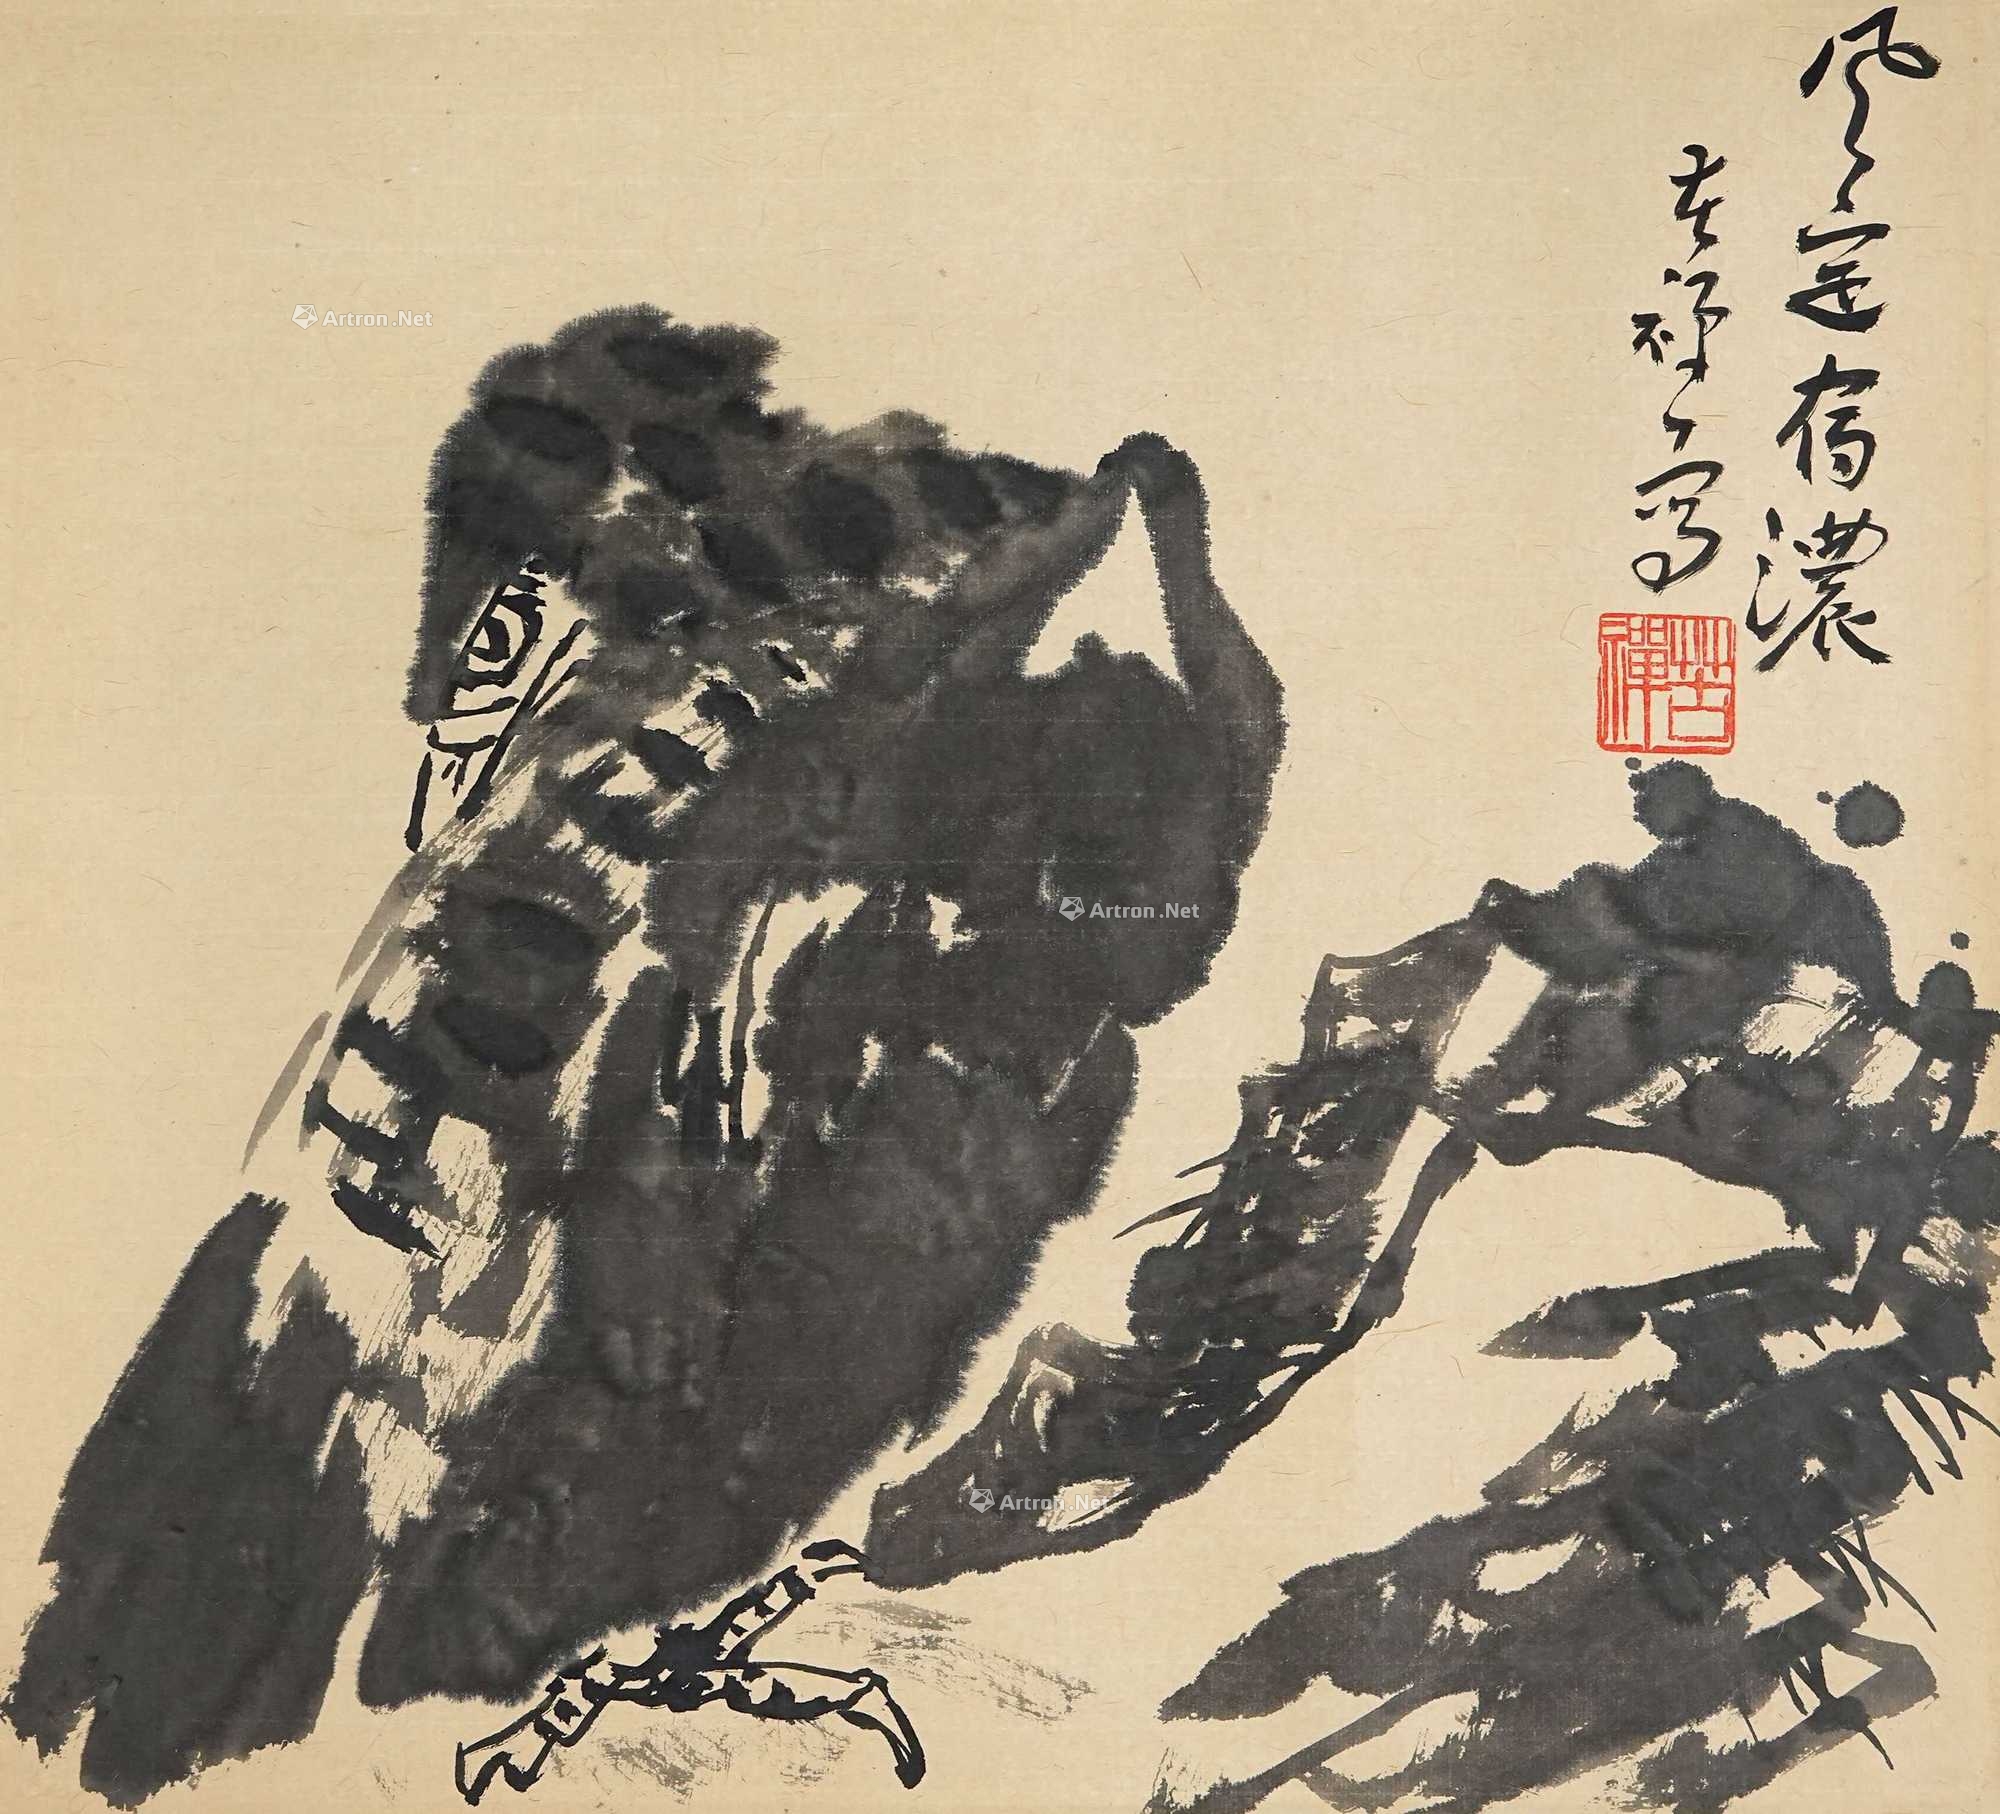 风定濃
苦禅写
苦禪
Artron.Net
Artron.Net
Artron.Net